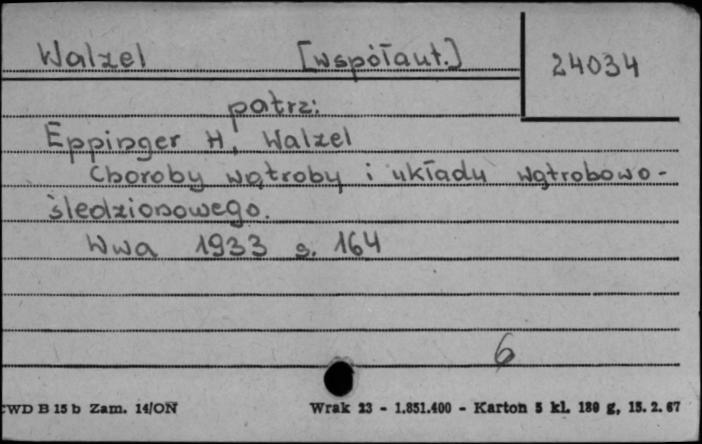 Walzel [współaut.] 24034
patrz:
Eppinger H, Walzel
Choroby wątroby i układu wątrobowo-
śledzionowego.
Wwa 1933 s. 164
6
CWD B 15 b Zam. 14/ON Wrak 23 - 1.851.400 - Karton 5 kl. 180 g, 15. 2. 67